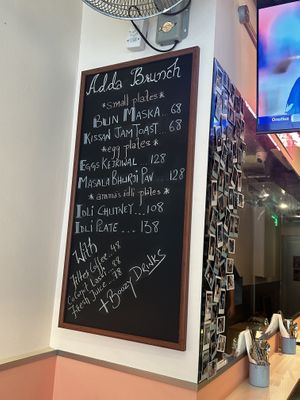 Adda Brunch
*small plates*
BUN MASKA.. 68
KISSAN JAM TOAST.. 68
*egg plates*
EGGS KEJRIWAL... 128
MASALA BHURJI PAV... 128
*amma's idli plates*
IDLI CHUTNEY...108
IDLI PLATE... 138
With
Filter Coffee..48
Coconut Lassi.. 88
Fresh Juice.. 78
+ BOOZY DRINKS